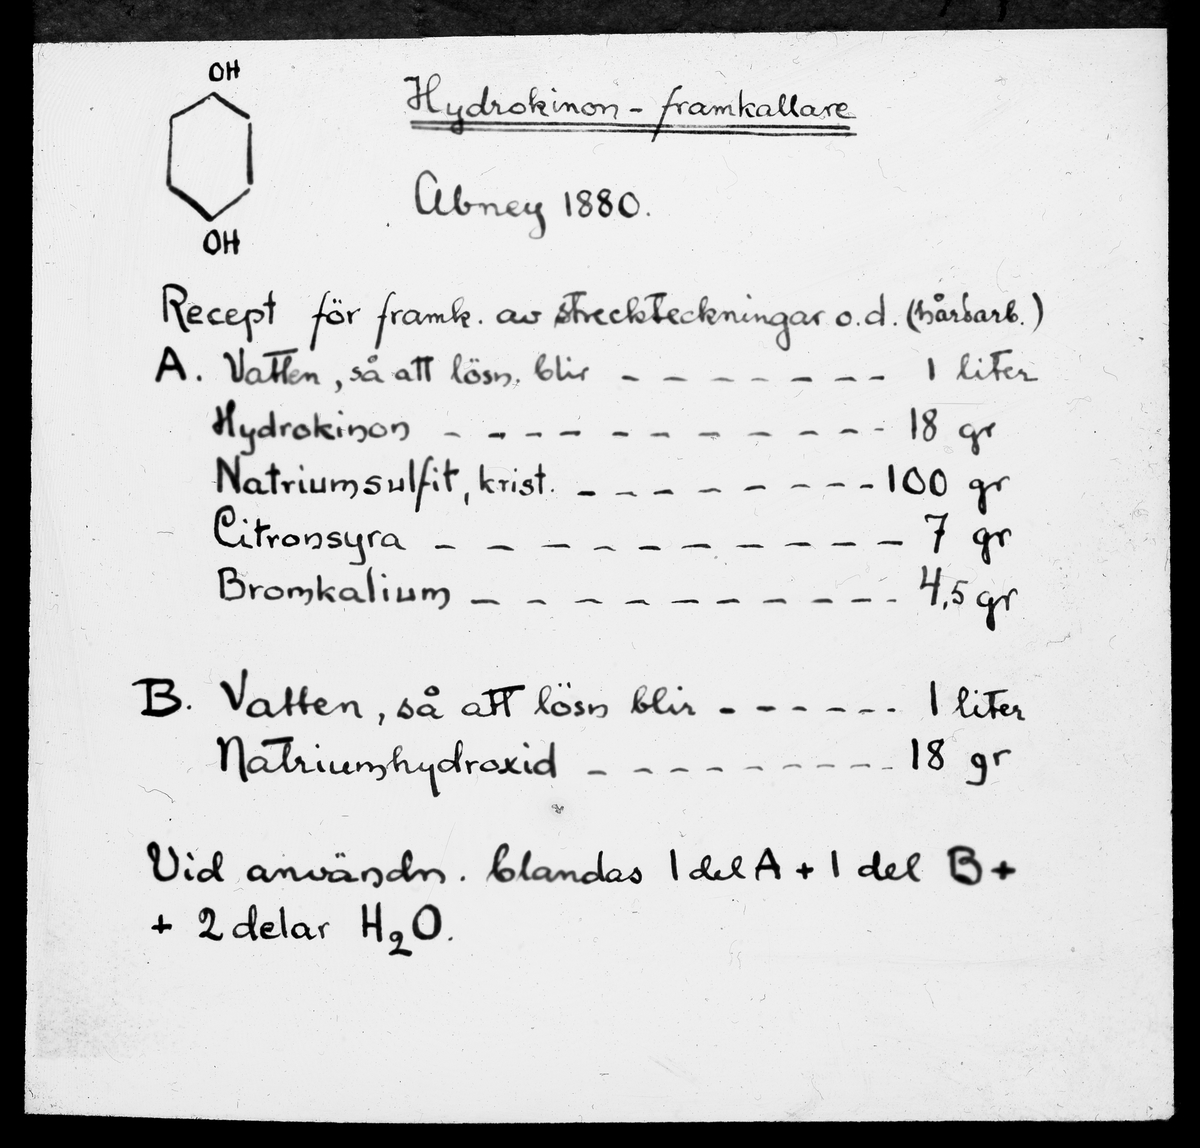 OH
Hydrokinon - framkallare
Abney 1880.
OH
Recept för framk. av streckteckningar o.d. (hårdarb.)
A. Vatten, så att lösn. blir - - - - - - - 1 liter
Hydrokinon - - - - - - - - - - - - 18 gr
Natriumsulfit, krist. - - - - - - - - 100 gr
Citronsyra - - - - - - - - - - - 7 gr
Bromkalium - - - - - - - - - - 4,5 gr
B. Vatten, så att lösn blir - - - - - - 1 liter
Natriumhydroxid - - - - - - - - - 18 gr
Vid användn. blandas 1 del A + 1 del B +
+ 2 delar H₂O.